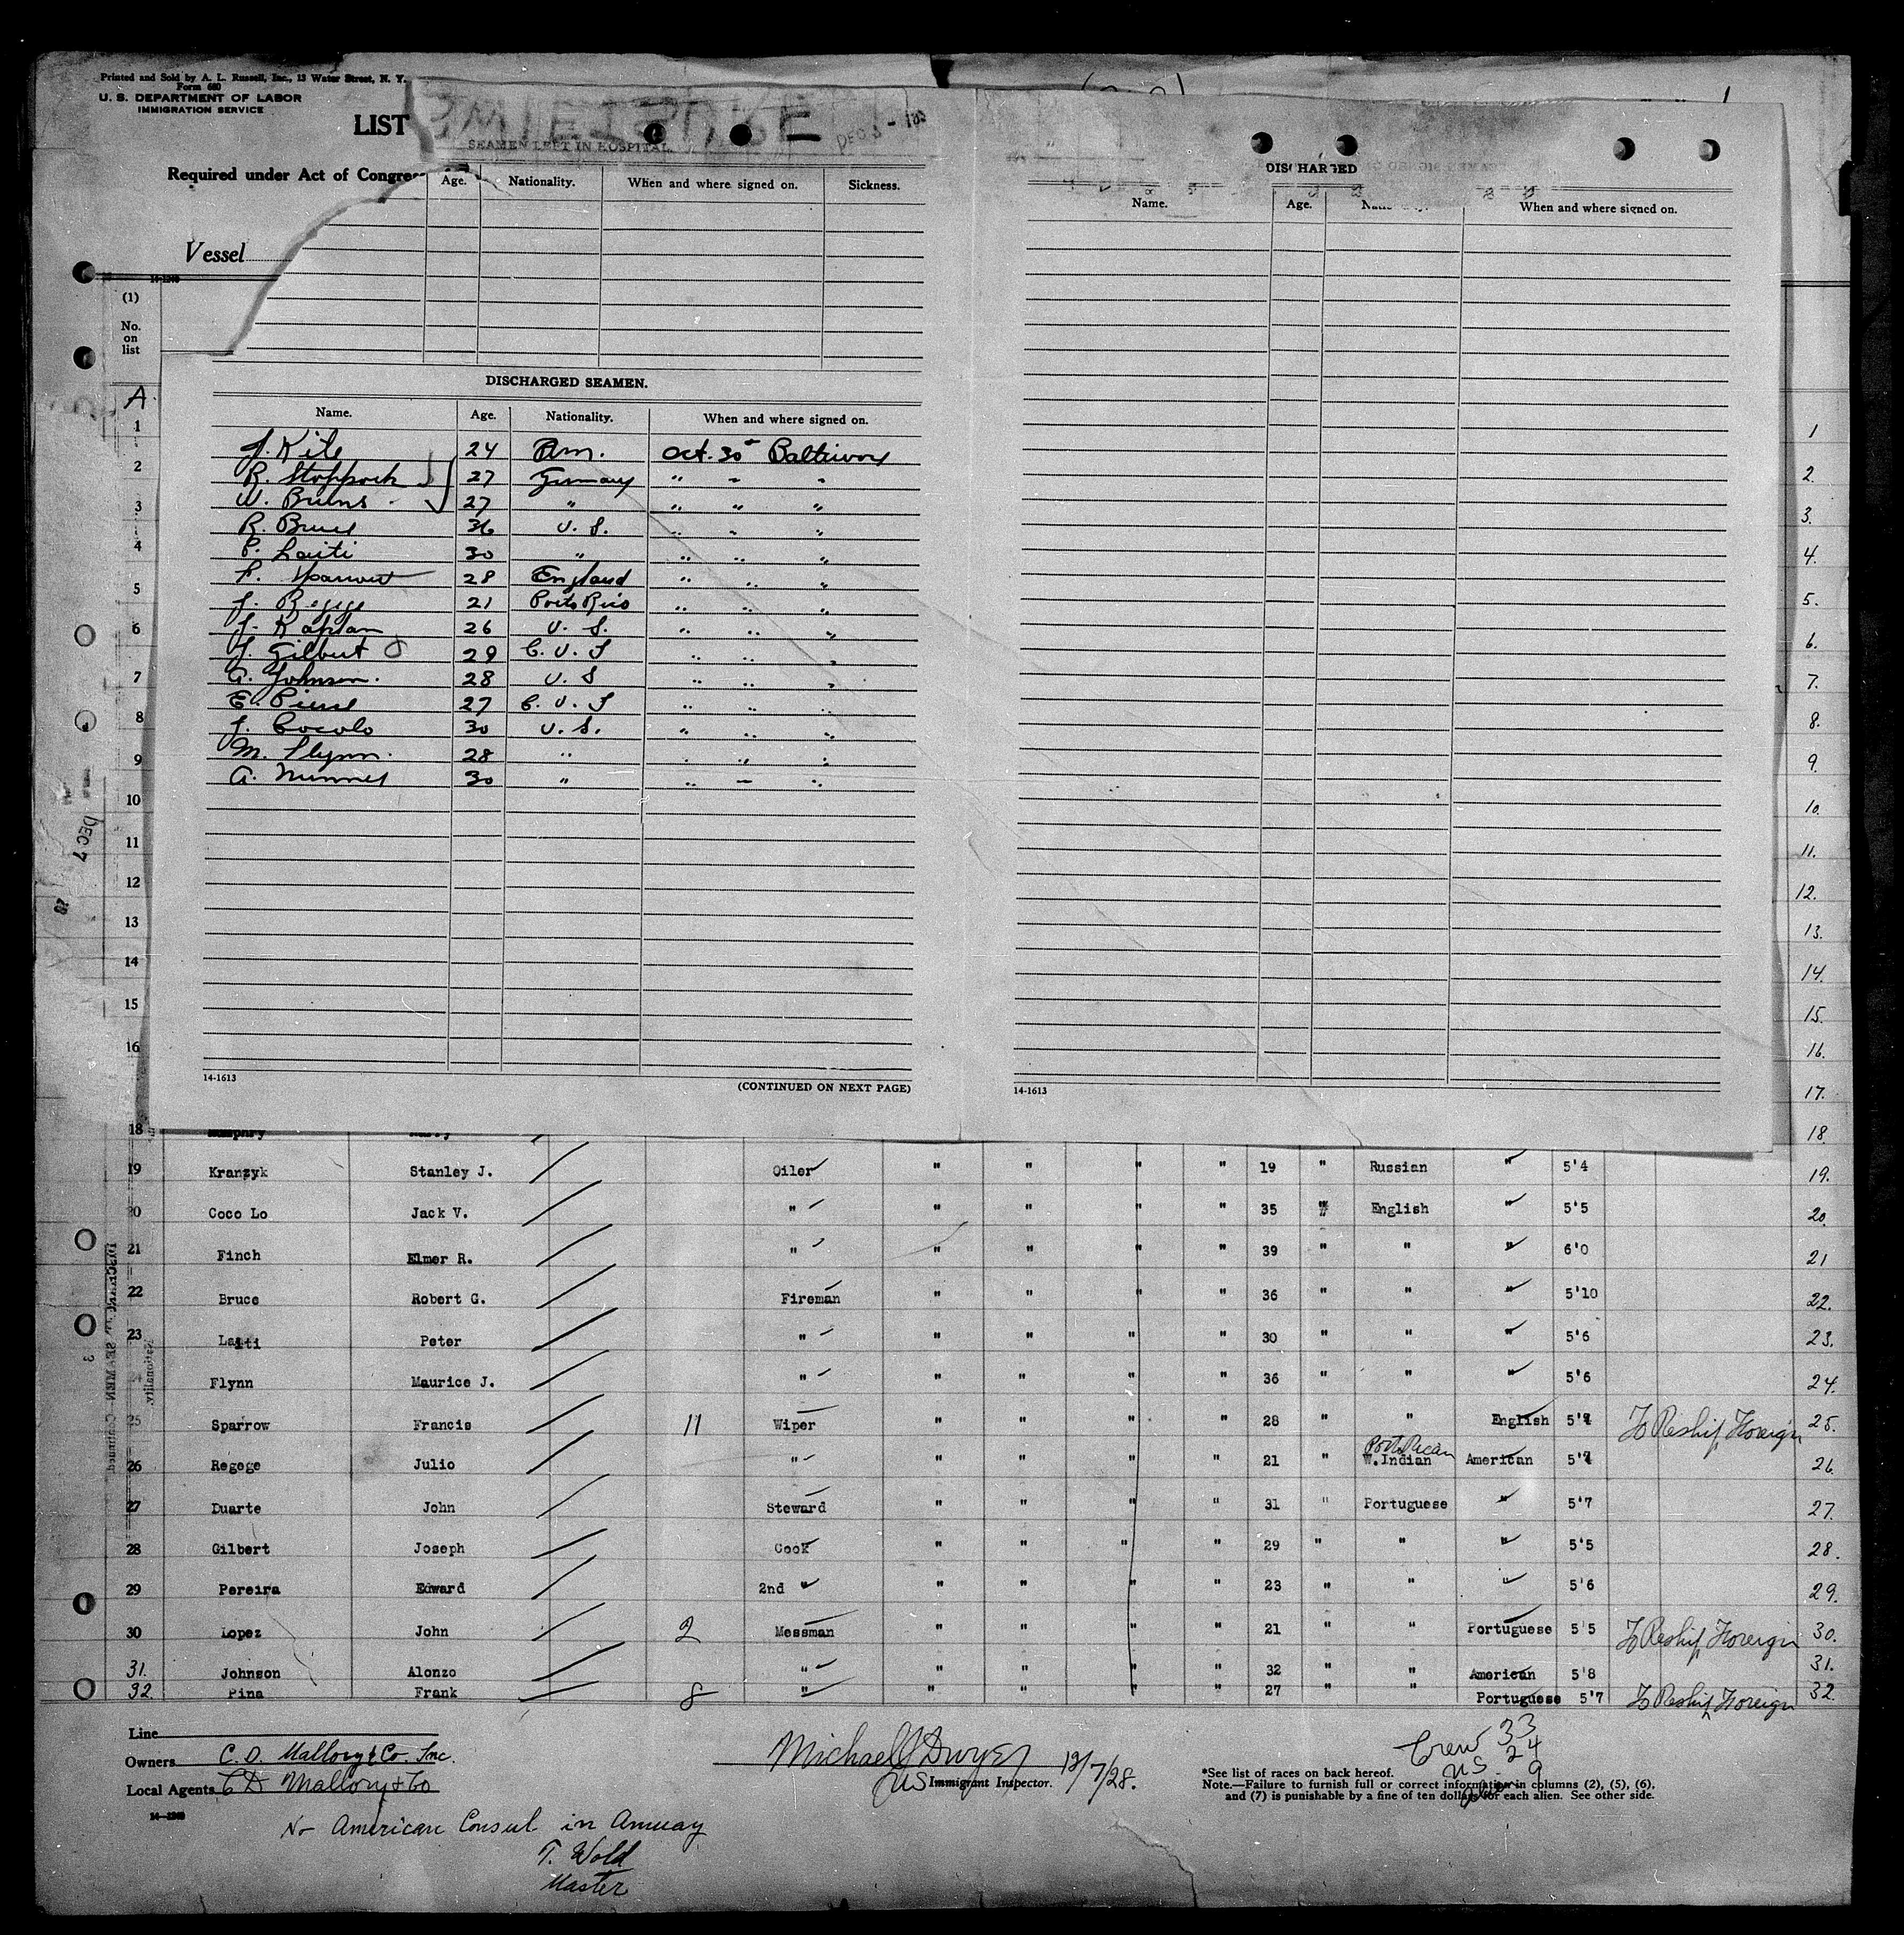 Printed and Sold by A. L. Russell, Inc., 13 Water Street, N. Y.
Form 680
U. S. DEPARTMENT OF LABOR
IMMIGRATION SERVICE
LIST
Required under Act of Congress
Vessel
14-1240
(1)
No. on list
SEAMEN LEFT IN HOSPITAL.
DEC 3 -
Age. Nationality. When and where signed on. Sickness.
DISCHARGED SEAMEN.
Name. Age. Nationality. When and where signed on.
J. Kile 24 Am. Oct. 30 Baltimore
R. Stoppock 27 Germany " " "
W. Bruns 27 " " " "
R. Bruce 36 U. S. " " "
P. Laiti 30 " " " "
28 England " " "
J. Regege 21 Porto Rico " " "
J. Kaplan 26 U. S. " " "
J. Gilbert 29 C. U. S " " "
A. Johnson. 28 U. S " " "
E. 27 C. U. S " " "
J. Cocolo 30 U. S. " " "
M. Flynn. 28 " " " "
A. 30 " " " "
14-1613
(CONTINUED ON NEXT PAGE)
DISCHARGED
Name. Age. When and where signed on.
14-1613
A
1 1
2 2.
3 3.
4 4.
5 5.
6 6.
7 7.
8 8.
9 9.
10 10.
11 11.
12 12.
13 13.
14 14.
15 15.
16 16.
17.
DEC 7
18 Humphry Harry 18.
19 Kranzyk Stanley J. Oiler " " " " 19 " Russian " 5'4 19.
20 Coco Lo Jack V. " " " " " 35 " English " 5'5 20.
21 Finch Elmer R. " " " " " 39 " " " 6'0 21
22 Bruce Robert G. Fireman " " " " 36 " " " 5'10 22.
23 Laiti Peter " " " " " 30 " " " 5'6 23.
Flynn Maurice J. " " " " " 36 " " " 5'6 24.
25 Sparrow Francis 11 Wiper " " " " 28 " " English To Reship Foreign 25.
26 Regege Julio " " " " " 21 " Porto Rican W.Indian American 26.
27 Duarte John Steward " " " " 31 " Portuguese " 5'7 27.
28 Gilbert Joseph Cook " " " " 29 " " " 5'5 28.
29 Pereira Edward 2nd " " " " " 23 " " " 5'6 29.
30 Lopez John 2 Messman " " " " 21 " " Portuguese 5'5 To Reship Foreign 30.
31. Johnson Alonzo " " " " " 32 " " American 5'8 31.
32. Pina Frank 8 " " " " " 27 " " Portuguese 5'7 To Reship Foreign 32.
Line
Owners C. D. Mallory & Co. Inc.
Local Agents C D Mallory & Co
14-1240
Michael J Dwyer 12/7/28.
US Immigrant Inspector.
Crew 33
US 24
Alien 9
*See list of races on back hereof.
Note.—Failure to furnish full or correct information in columns (2), (5), (6), and (7) is punishable by a fine of ten dollars for each alien. See other side.
No American Consul in Amuay
T. Wold
Master